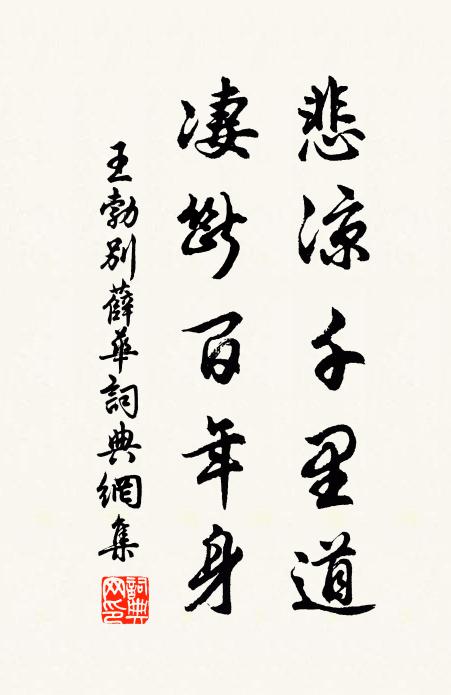 悲涼千里道
凄斷百年身
王勃別薛華詞典網集
詞典网印